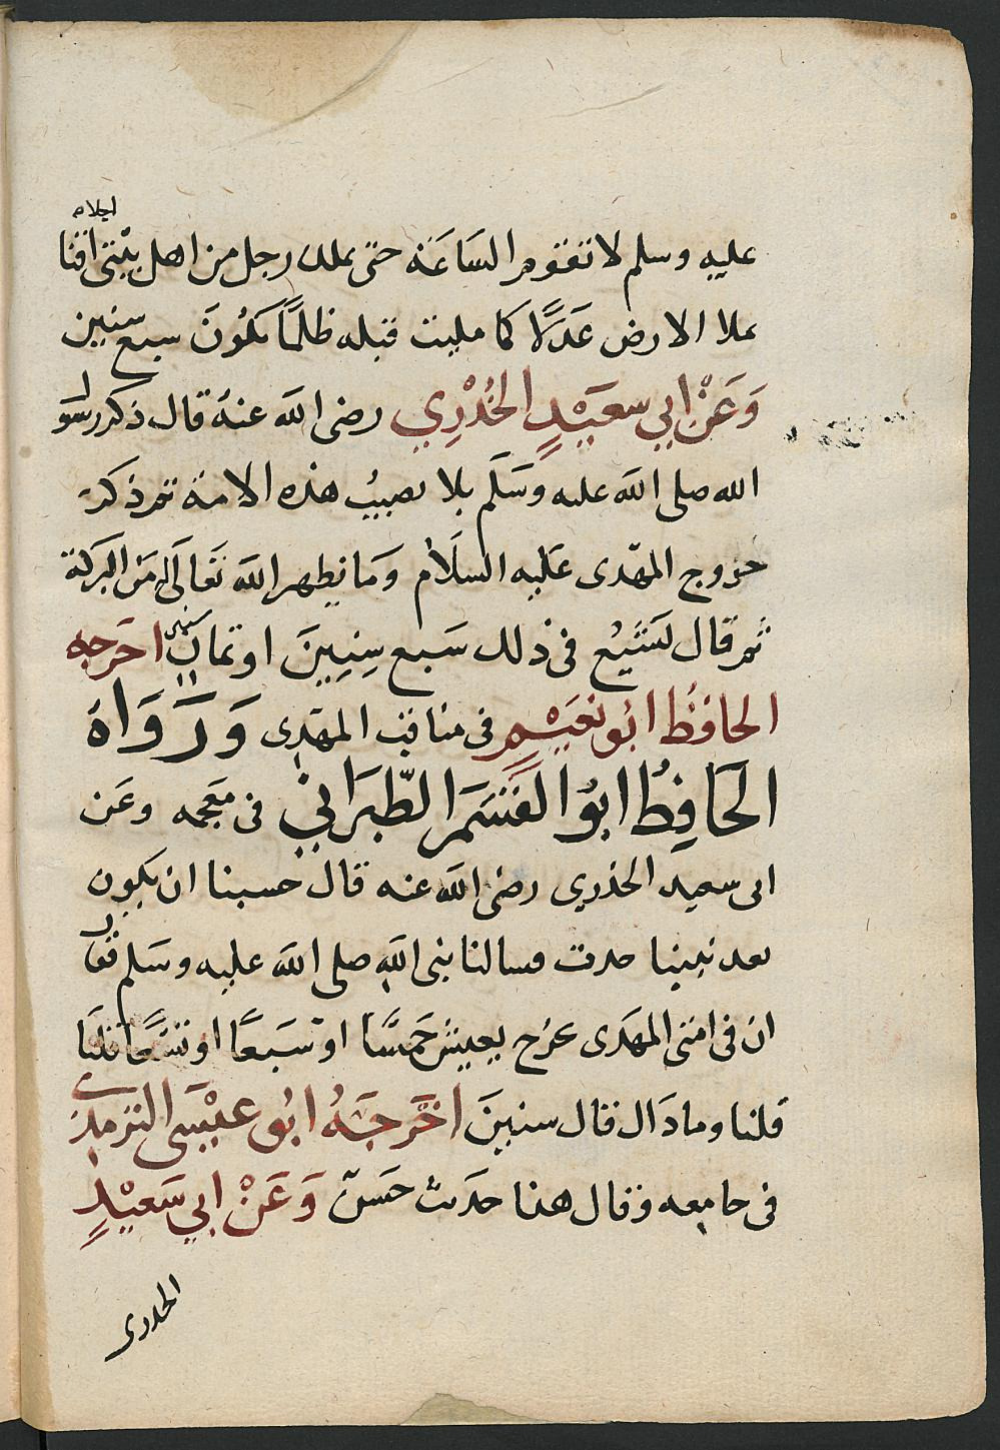 اجلا
عليه وسلم لا تقوم الساعَة حتى يملك رجل من اهل بيْتى اقنا
يملا الارض عَدلًا كما مليت قبله ظلمًا يكُونَ سبع سنين
وَعَنْ ابي سعَيْدٍ الخُدْرِي رضى الله عنهُ قال ذكر رسول
الله صلى الله عليه وسَلَم بلا يصيبُ هذه الامة ثم ذكر
خروج المهّدى عَليه السلَام وَما يظهر الله تَعَالَى له مَن البركة
ثم قال نسَتَيْع فى ذلك سَبع سِنِينَ او ثمانٍ سنين اخرَجه
الحافظُ ابُو نعَيْمٍ فى مناقب المهّدى وَرَوَاهُ
الحَافِظُ ابُو القسَمَ الطّبرَاني فى معَجمه وعَن
ابى سعيد الخدري رضى الله عنه قال خسينا ان يكون
بعد نبينا حدث فسالنا نبى الله صلى الله عليه وسَلم فقال
ان فى امتى المهَدى يخرج يعيش خَمسًّا او سَبعًا او تسْعًا
قلنا وما ذاك قال سنينَ اخَرجَهُ ابُو عيْسَى الترمذي
فى جامعه وقال هذا حدَيث حَسَن وَعَنْ ابي سَعيْدٍ
الخدرى